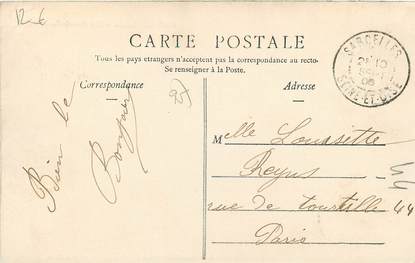 12-€
CARTE POSTALE
Tous les pays etrangers n'acceptent pas la correspondance au recto-
Se renseigner à la Poste.
Correspondance
Adresse
SARCELLES
SEINE-ET-OISE
Bien le
Bonjour
Melle Louisette
rue de tourtille 44
Paris
44